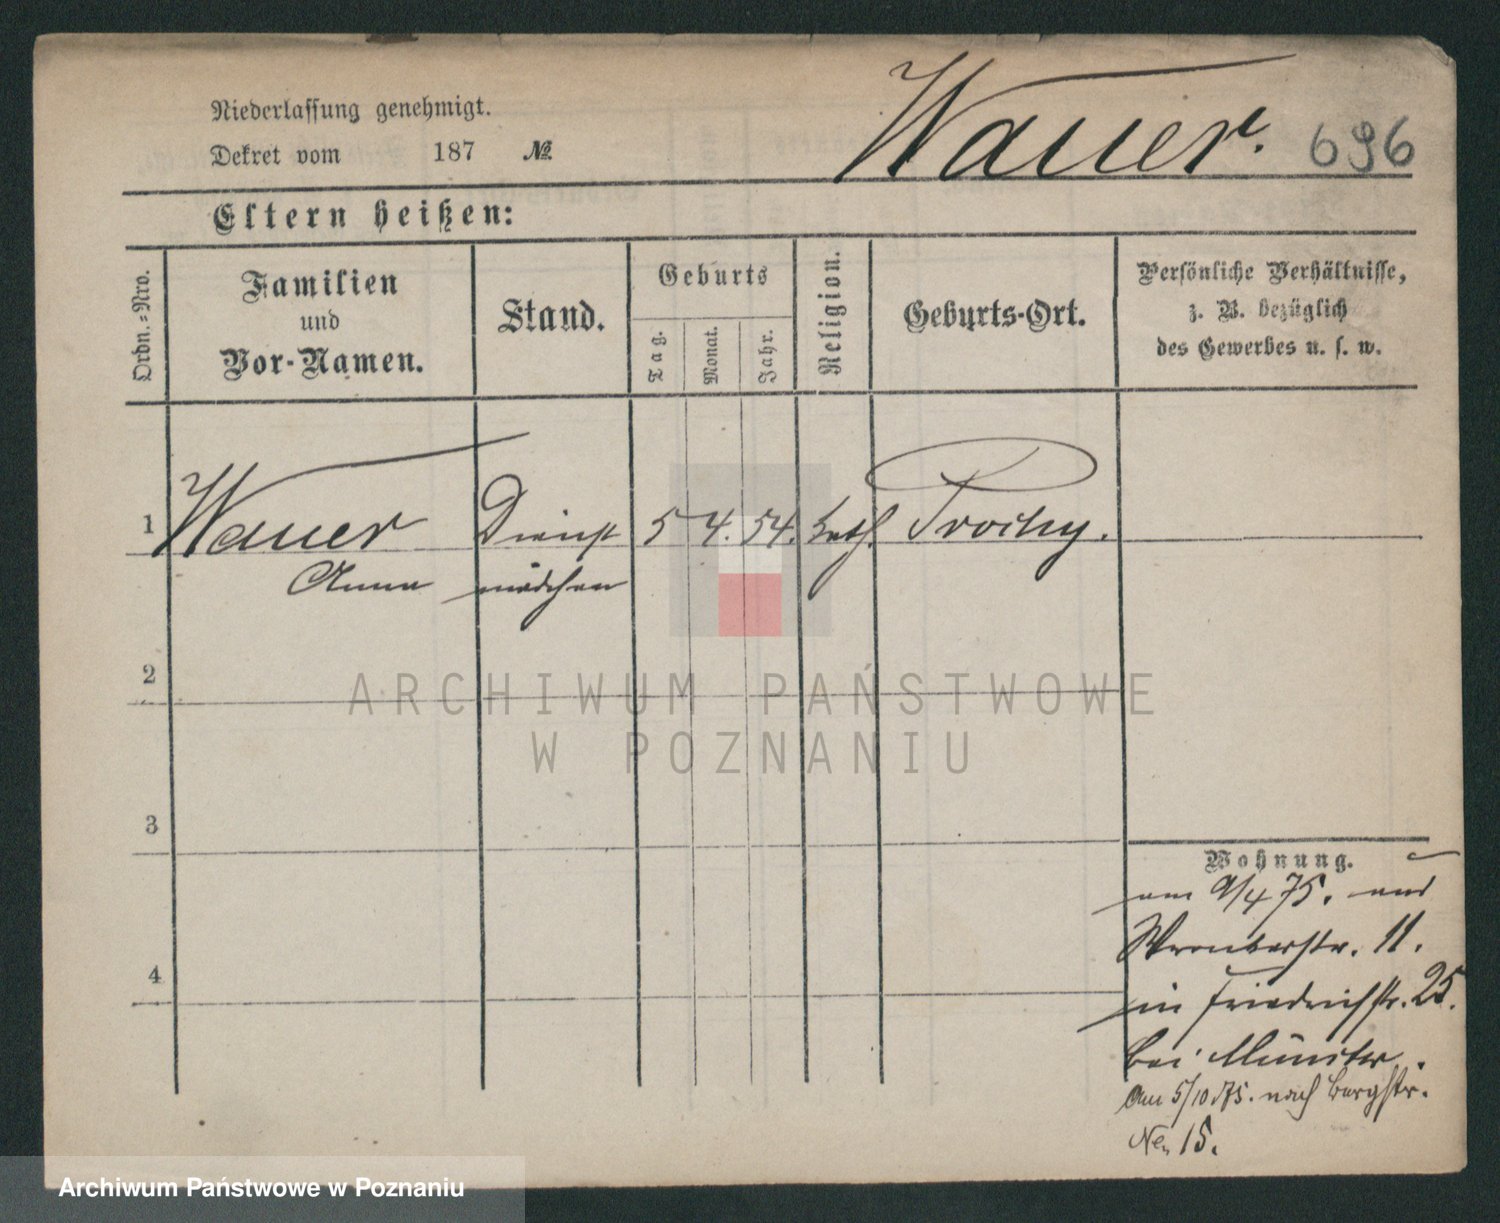 Niederlassung genehmigt.
Dekret vom 187 №
Wauer. 696
Eltern heißen:
Ordn.=Nro.
Familien
und
Vor-Namen.
Stand.
Geburts
Tag.
Monat.
Jahr.
Religion.
Geburts-Ort.
Persönliche Verhältnisse,
z. B. bezüglich
des Gewerbes u. s. w.
1 Wauer Dienst 5 4. 54. kath.
Anna mädchen
2
3
4
Wohnung.
am 9/4 75. aus
Wronkerstr. 11.
in Friedrichstr. 25.
bei Münster.
Am 5/10 75. nach Bergstr.
No 15.
ARCHIWUM PAŃSTWOWE
W POZNANIU
Archiwum Państwowe w Poznaniu